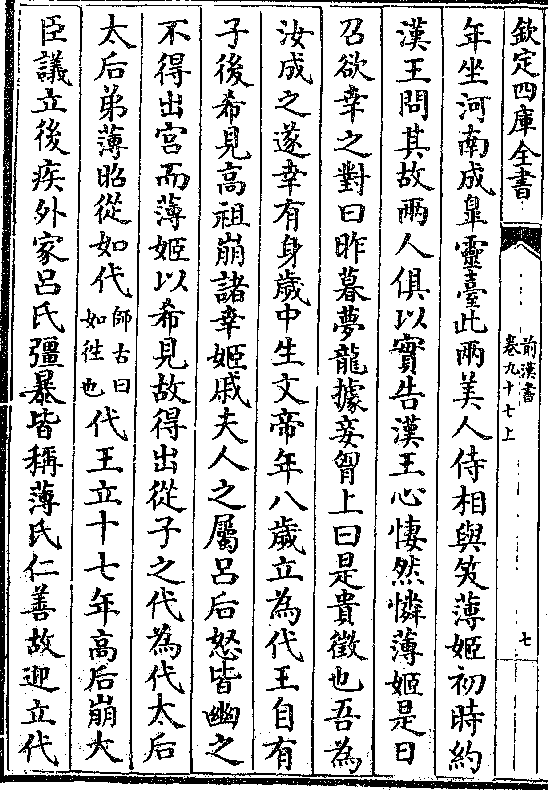 欽定四庫全書
前漢書
卷九十七上
七
年坐河南成臯靈臺此兩美人侍相與笑薄姬初時約
漢王問其故兩人俱以實告漢王心悽然憐薄姬是日
召欲幸之對曰昨暮夢龍據妾胷上曰是貴徵也吾為
汝成之遂幸有身歲中生文帝年八歲立為代王自有
子後希見高祖崩諸幸姬戚夫人之屬呂后怒皆幽之
不得出宮而薄姬以希見故得出從子之代為代太后
太后弟薄昭從如代師古曰如徃也代王立十七年高后崩大
臣議立後疾外家呂氏彊暴皆稱薄氏仁善故迎立代